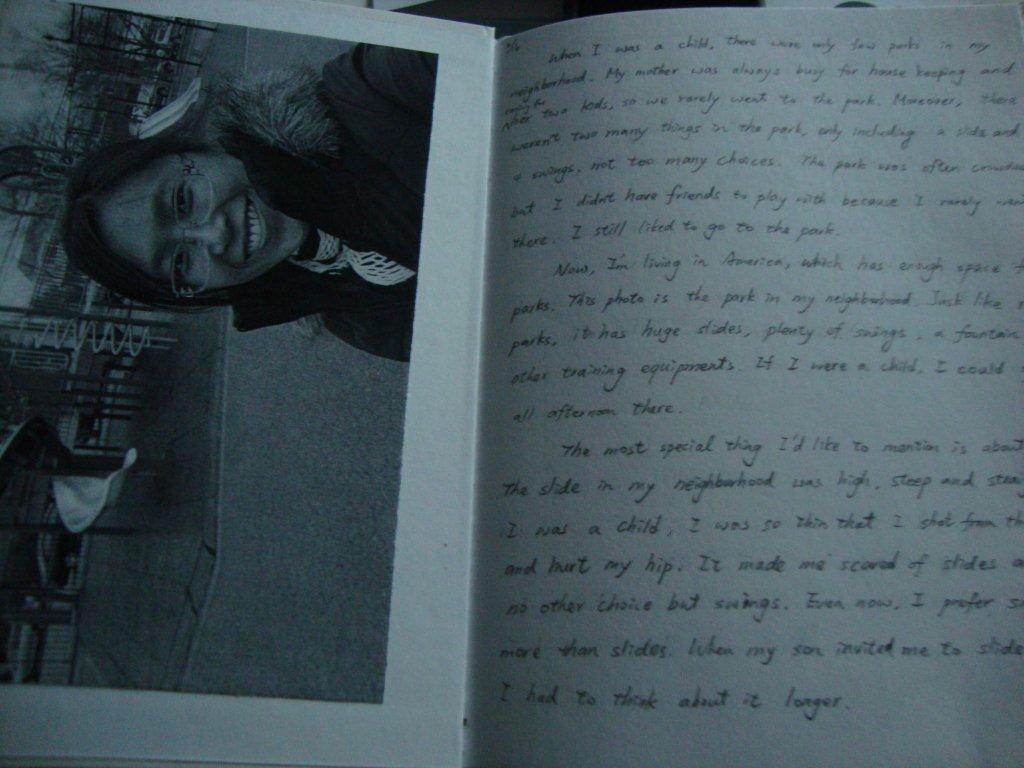 7/6 When I was a child, there were only few parks in my
neighborhood. My mother was always busy for house keeping and
caring for
two kids, so we rarely went to the park. Moreover, there
weren't two many things in the park, only including a slide and
4 swings, not too many choices. The park was often
but I didn't have friends to play with because I rarely
there. I still liked to go to the park.
Now, I'm living in America, which has enough space
parks. This photo is the park in my neighborhood. Just like
parks, it has huge slides, plenty of swings, a fountain
other training equipments. If I were a child, I could
all afternoon there.
The most special thing I'd like to mention is about
The slide in my neighborhood was high, steep and
I was a child, I was so thin that I shot from
and hurt my hip. It made me scared of slides
no other choice but swings. Even now, I prefer
more than slides. When my son invited me to slide
I had to think about it longer.